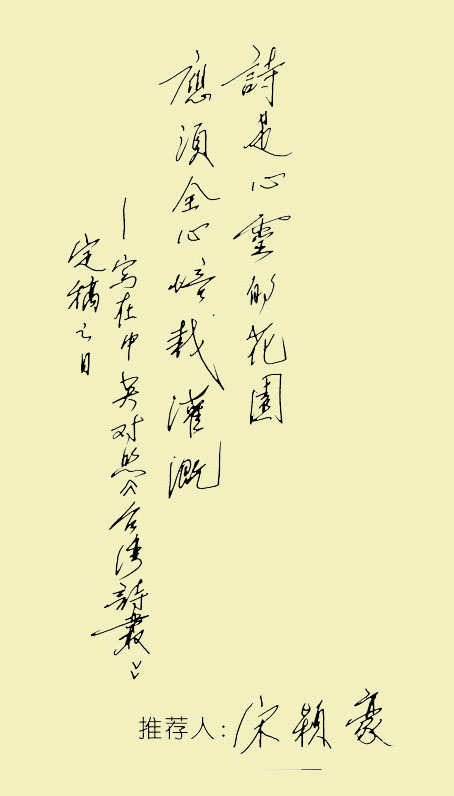 詩是心靈的花園
應須全心培栽灌溉
—寫在中英对照《台湾詩叢》
定稿之日
推荐人:宋穎豪